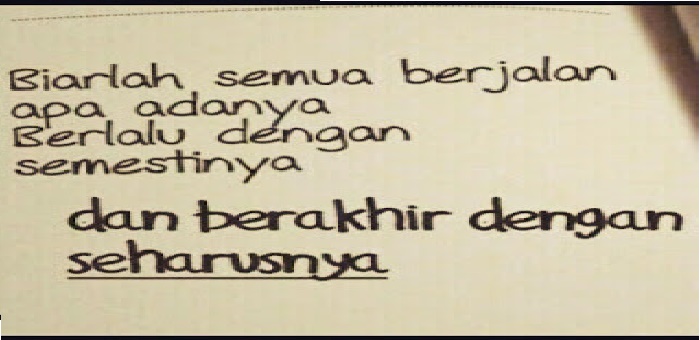 Biarlah semua berjalan
apa adanya
Berlalu dengan
semestinya
dan berakhir dengan
seharusnya